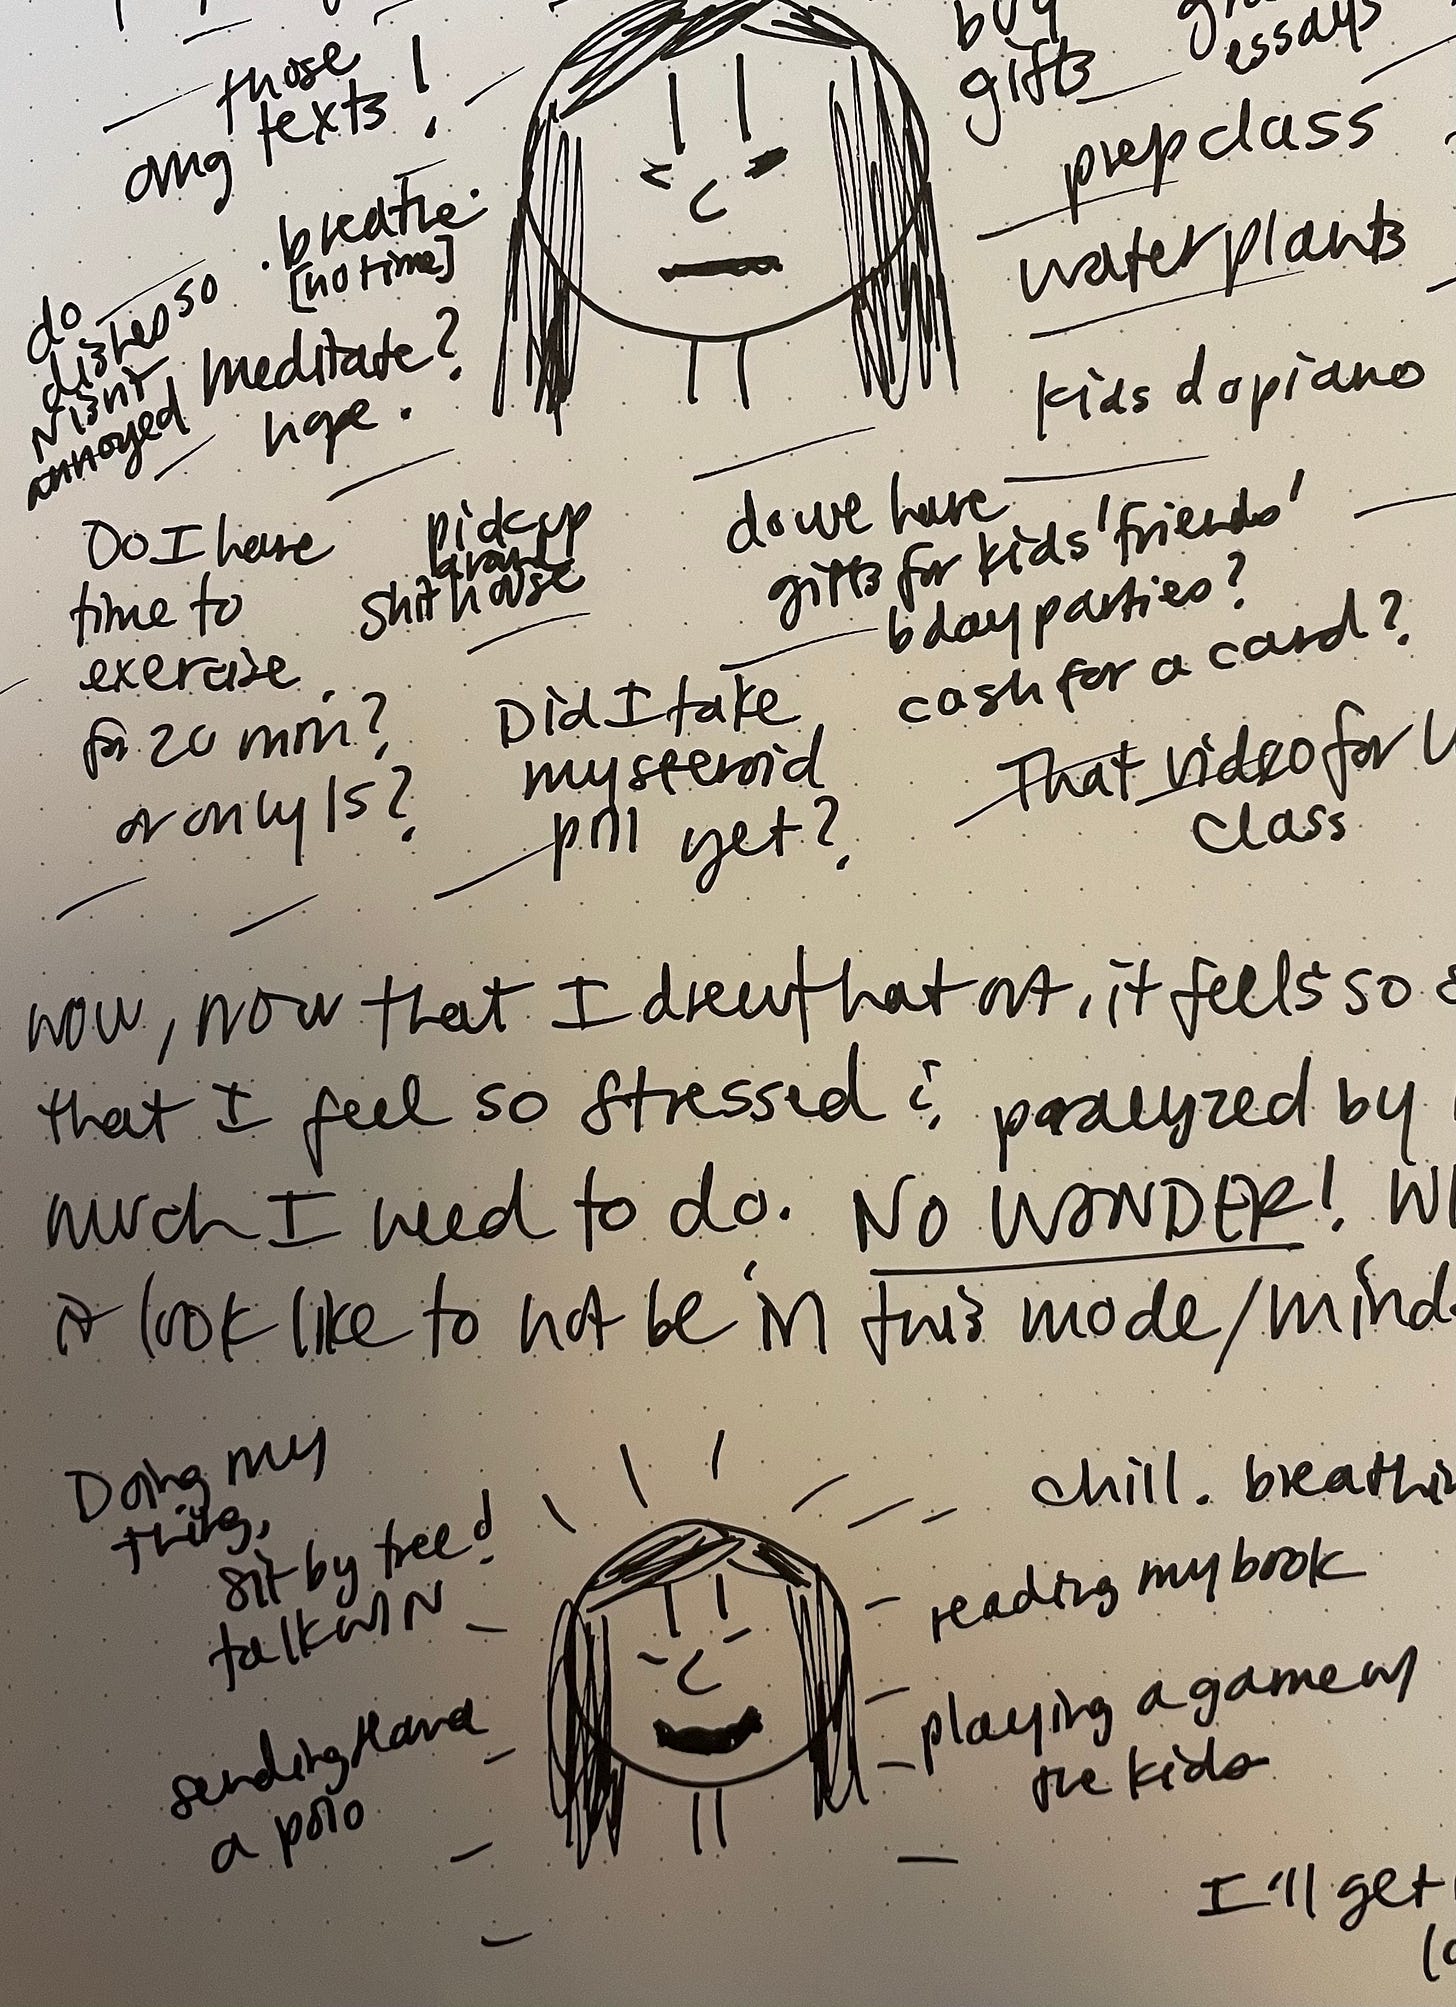 those
texts!
omg
breathe.
[no time]
do
dishes so
N isn't
annoyed
meditate?
nope.
buy
gifts
essays
prep class
water plants
kids do piano
Do I have
time to
exercise
for 20 min?
or only 15?
pick up
around
shithouse
Did I take
my steroid
pill yet?
do we have
gifts for kids' friends'
bday parties?
cash for a card?
That video for
class
wow, now that I drew that out, it feels so
that I feel so stressed & paralyzed by
much I need to do. NO WONDER!
it look like to not be in this mode/
Doing my
thing,
sit by tree!
talk w/ N
sending Hana
a polo
chill.
reading my book
playing a game w/
the kids
I'll get